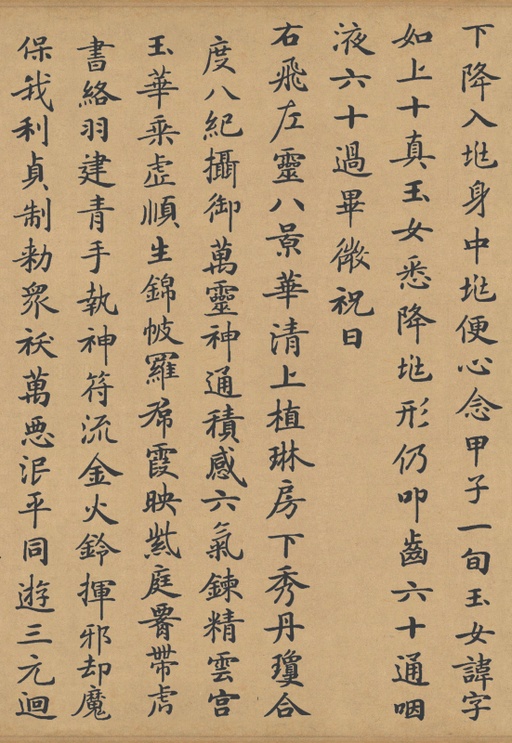 下降入垗身中垗便心念甲子一旬玉女諱字
如上十真玉女悉降垗形仍叩齒六十通咽
液六十過畢微祝曰
右飛左靈八景華清上植琳房下秀丹瓊合
度八紀攝御萬靈神通積感六氣鍊精雲宮
玉華乘虛順生錦帔羅帬霞映紫庭腰帶虎
書絡羽建青手執神符流金火鈴揮邪却魔
保我利貞制勑眾祅萬惡泯平同遊三元迴